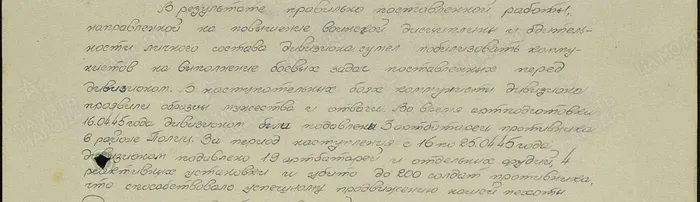 В результате правильно поставленной работы,
направленной на повышение воинской дисциплины и бдитель-
ности личного состава дивизиона сумел мобилизовать комму-
нистов на выполнение боевых задач поставленных перед
дивизионом. В наступательных боях коммунисты дивизиона
проявили образцы мужества и отваги. Во время артподготовки
16.04.45 года дивизионом были подавлены 3 артбатареи противника
в районе Полец. За период наступления с 16 по 25.04.45 года
дивизионом подавлено 19 артбатарей и отдельных орудий, 4
реактивных установки и убито до 200 солдат противника,
что способствовало успешному продвижению нашей пехоты.